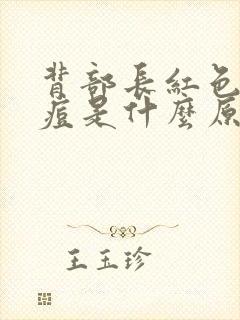 背部長紅色
痘是什麼原
王玉珍